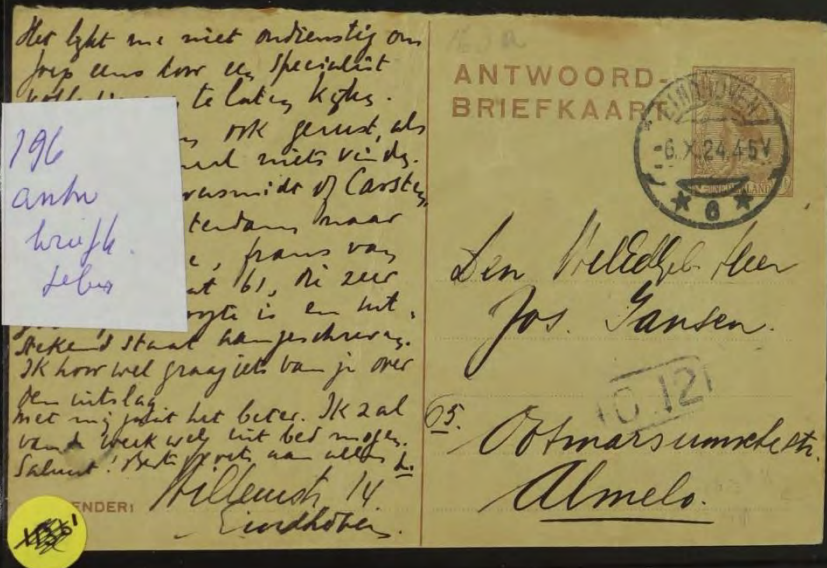 Het lykt me niet ondienstig om
Joep eens door een specialist
te laten kyken.
ook gerust, als
niets vinden.
of Carsten,
terdam, naar
frans van
at 61, die zeer
oogte is en uit-
stekend staat aangeschreven.
Ik hoor wel graag iets van je over
den uitslag
met my gaat het beter. Ik zal
van de week wel uit bed mogen.
Saluut! Beste groeten aan allen
ENDER: Willemstr. 14
Eindhoven.
196
antw
briefk
ANTWOORD-
BRIEFKAART
EINDHOVEN
6.X.24.4-5V
6
Den WelEdGeb. Heer
Jos. Jansen.
D 12
65.
Ootmarsumschestr.
Almelo.